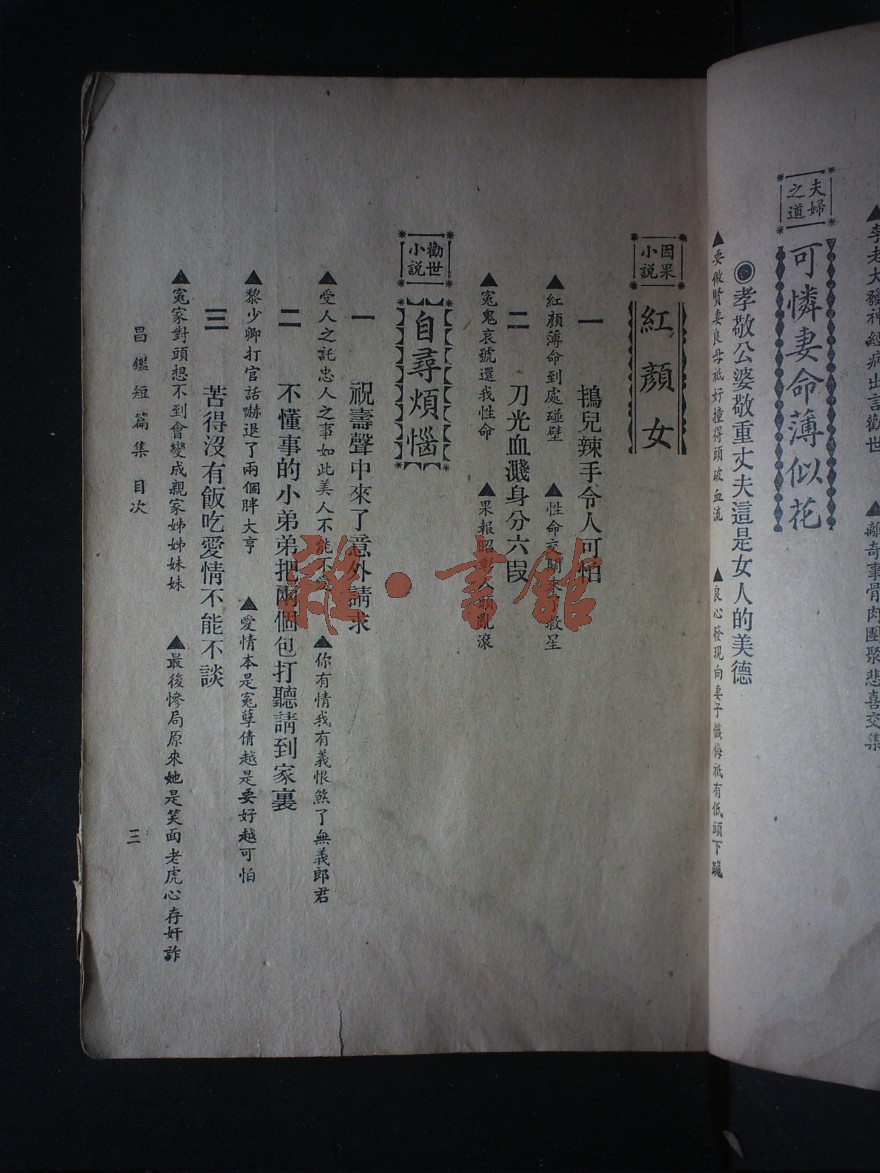 ▲李老大發神經病出言勸世　▲離奇事骨肉團聚悲喜交集
夫婦之道
可憐妻命薄似花
◉孝敬公婆敬重丈夫這是女人的美德
▲要做賢妻良母祇好撞得頭破血流　▲良心發現向妻子懺悔祇有低頭下跪
因果小說
紅顏女
一　鴇兒辣手令人可怕
▲紅顏薄命到處碰壁　▲性命交關救星
二　刀光血濺身分六段
▲冤鬼哀號還我性命　▲果報昭彰人亂滾
勸世小說
自尋煩惱
一　祝壽聲中來了意外請求
▲受人之託忠人之事如此美人不能不　▲你有情我有義恨煞了無義郎君
二　不懂事的小弟弟把兩個包打聽請到家裏
▲黎少卿打官話嚇退了兩個胖大亨　▲愛情本是冤孽倩越是要好越可怕
三　苦得沒有飯吃愛情不能不談
▲冤家對頭想不到會變成親家姊姊妹妹　▲最後慘局原來她是笑面老虎心存奸詐
昌鑑短篇集　目次
三
雜·書館